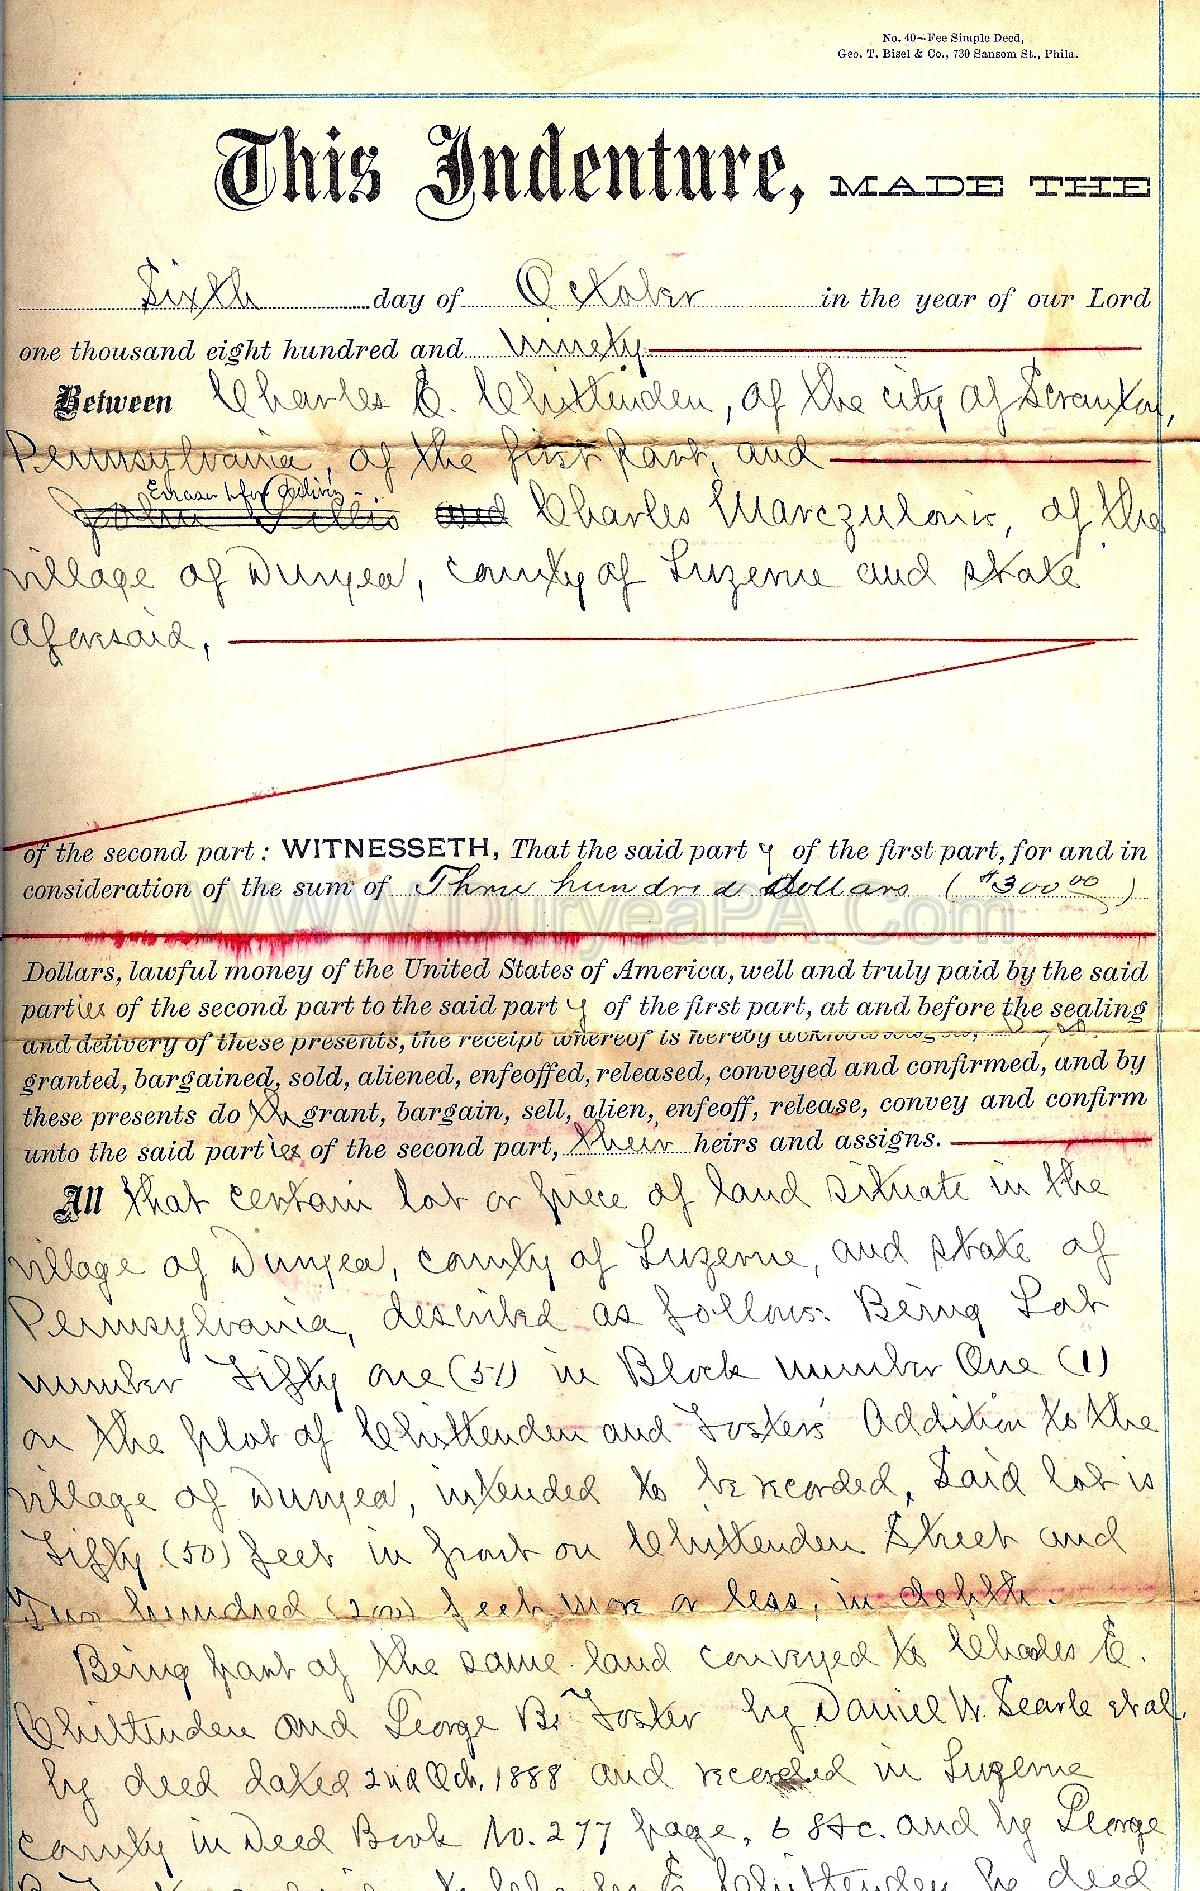 No. 40—Fee Simple Deed,
Geo. T. Bisel & Co., 730 Sansom St., Phila.
This Indenture, MADE THE
Sixth day of October in the year of our Lord
one thousand eight hundred and ninety
Between Charles E. Chittenden, of the city of Scranton,
Pennsylvania, of the first part, and
Erased before delivery
John and Charles Marczulonis, of the
village of Duryea, county of Luzerne and state
aforesaid,
of the second part: WITNESSETH, That the said party of the first part, for and in
consideration of the sum of Three hundred Dollars ($300 00)
www.DuryeaPA.Com
Dollars, lawful money of the United States of America, well and truly paid by the said
parties of the second part to the said party of the first part, at and before the sealing
and delivery of these presents, the receipt whereof is hereby acknowledged,
granted, bargained, sold, aliened, enfeoffed, released, conveyed and confirmed, and by
these presents doth grant, bargain, sell, alien, enfeoff, release, convey and confirm
unto the said parties of the second part, their heirs and assigns.
All that certain lot or piece of land situate in the
village of Duryea, county of Luzerne, and state of
Pennsylvania, described as follows: Being Lot
number Fifty one (51) in Block number One (1)
on the plot of Chittenden and Foster's Addition to the
village of Duryea, intended to be recorded, Said lot is
Fifty (50) feet in front on Chittenden Street and
Two hundred (200) feet more or less, in depth.
Being part of the same land conveyed to Charles E.
Chittenden and George B. Foster by Daniel W. Searle et al.
by deed dated 2nd Oct. 1888 and recorded in Luzerne
county in Deed Book No. 277 page, 6 &c. and by George
to Charles E Chittenden by deed